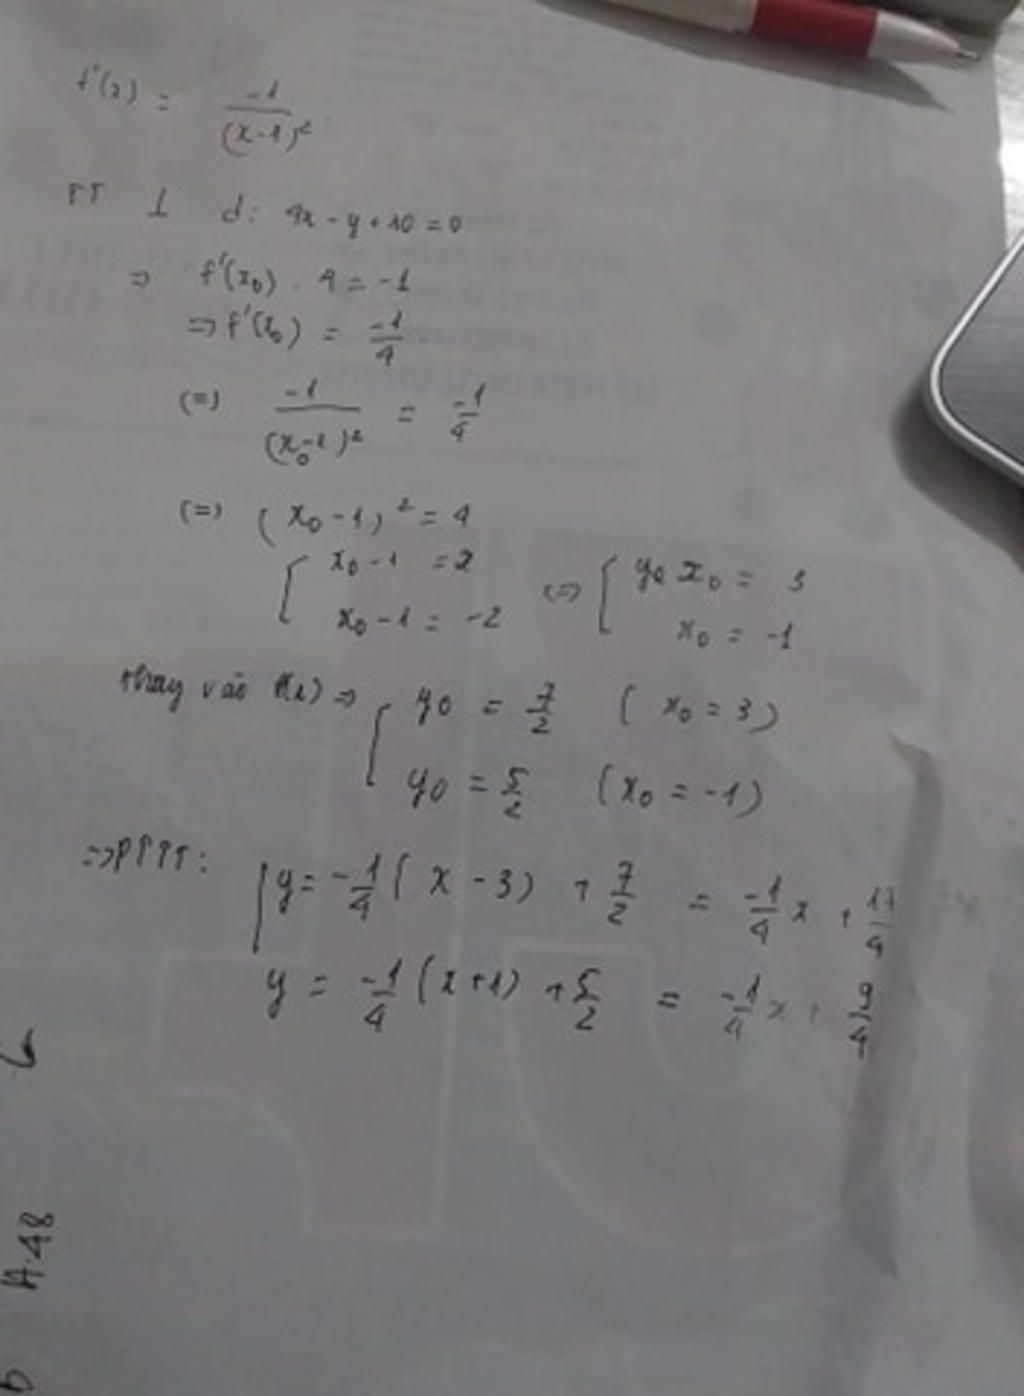 f'(x) = -1/(x-1)²
TT ⊥ d: 4x - y + 10 = 0
=> f'(x₀) . 4 = -1
=> f'(x₀) = -1/4
(=) -1/(x₀-1)² = -1/4
(=) (x₀-1)² = 4
[ x₀ - 1 = 2 (=) [ x₀ = 3
x₀ - 1 = -2 x₀ = -1
thay vào f(x) => [ y₀ = 7/2 ( x₀ = 3)
y₀ = 5/2 (x₀ = -1)
=> PTTT: [ y = -1/4 ( x - 3) + 7/2 = -1/4 x + 17/4
y = -1/4 (x+1) + 5/2 = -1/4 x + 9/4
A.48